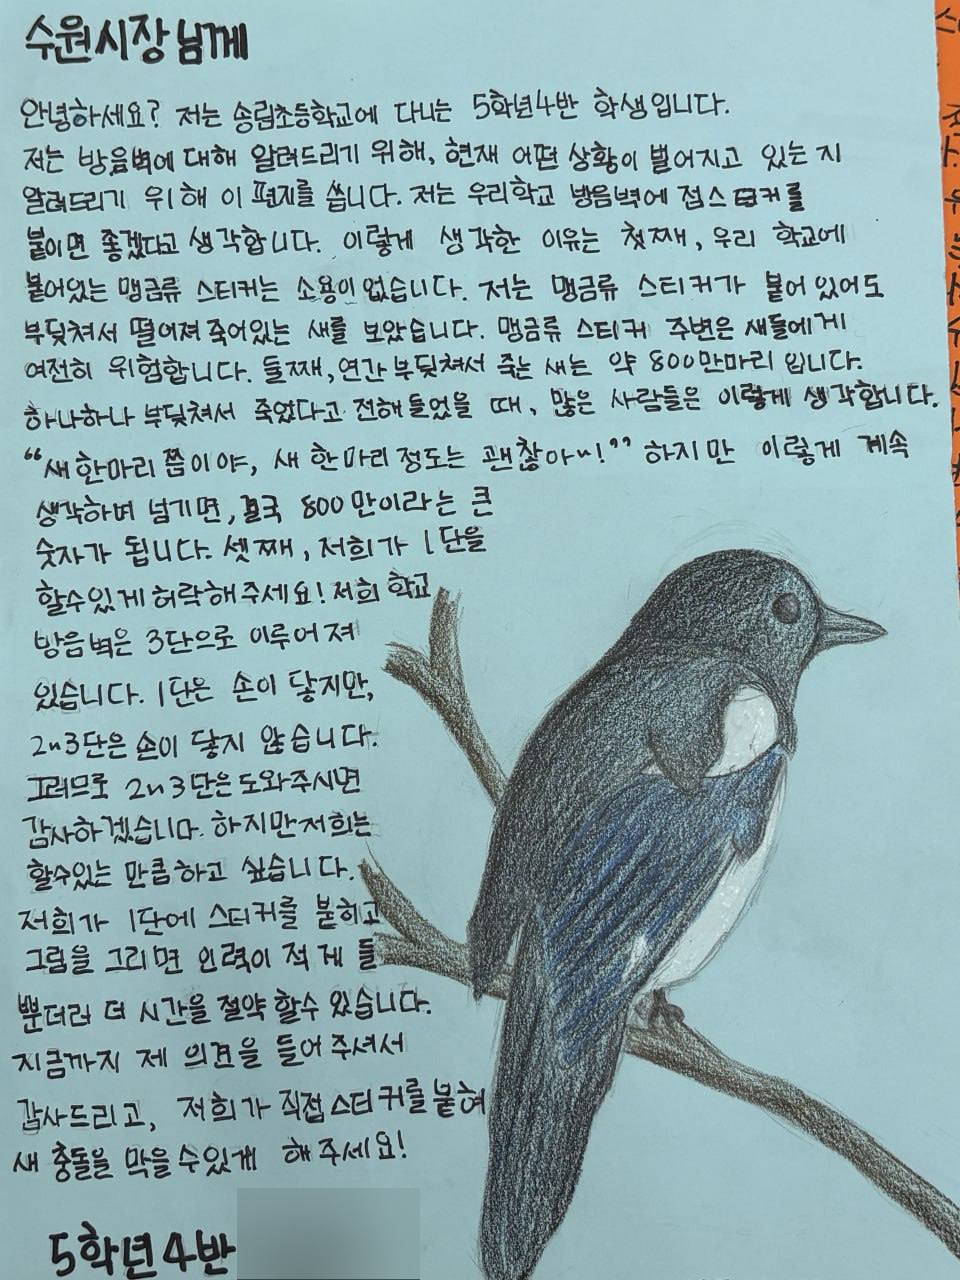 수원시장님께
안녕하세요? 저는 송림초등학교에 다니는 5학년4반 학생입니다.
저는 방음벽에 대해 알려드리기 위해, 현재 어떤 상황이 벌어지고 있는지
알려드리기 위해 이 편지를 씁니다. 저는 우리학교 방음벽에 점스티커를
붙이면 좋겠다고 생각합니다. 이렇게 생각한 이유는 첫째, 우리 학교에
붙어있는 맹금류 스티커는 소용이 없습니다. 저는 맹금류 스티커가 붙어 있어도
부딪쳐서 떨어져 죽어있는 새를 보았습니다. 맹금류 스티커 주변은 새들에게
여전히 위험합니다. 둘째, 연간 부딪쳐서 죽는 새는 약 800만마리 입니다.
하나하나 부딪쳐서 죽었다고 전해들었을 때, 많은 사람들은 이렇게 생각합니다.
“새 한마리 쯤이야, 새 한마리 정도는 괜찮아~!” 하지만 이렇게 계속
생각하며 넘기면, 결국 800만이라는 큰
숫자가 됩니다. 셋째, 저희가 1단을
할수있게 허락해주세요! 저희 학교
방음벽은 3단으로 이루어져
있습니다. 1단은 손이 닿지만,
2~3단은 손이 닿지 않습니다.
그러므로 2~3단은 도와주시면
감사하겠습니다. 하지만 저희는
할수있는 만큼하고 싶습니다.
저희가 1단에 스티커를 붙히고
그림을 그리면 인력이 적게 들
뿐더러 더 시간을 절약 할수 있습니다.
지금까지 제 의견을 들어 주셔서
감사드리고, 저희가 직접 스티커를 붙혀
새 충돌을 막을 수있게 해주세요!
5학년4반